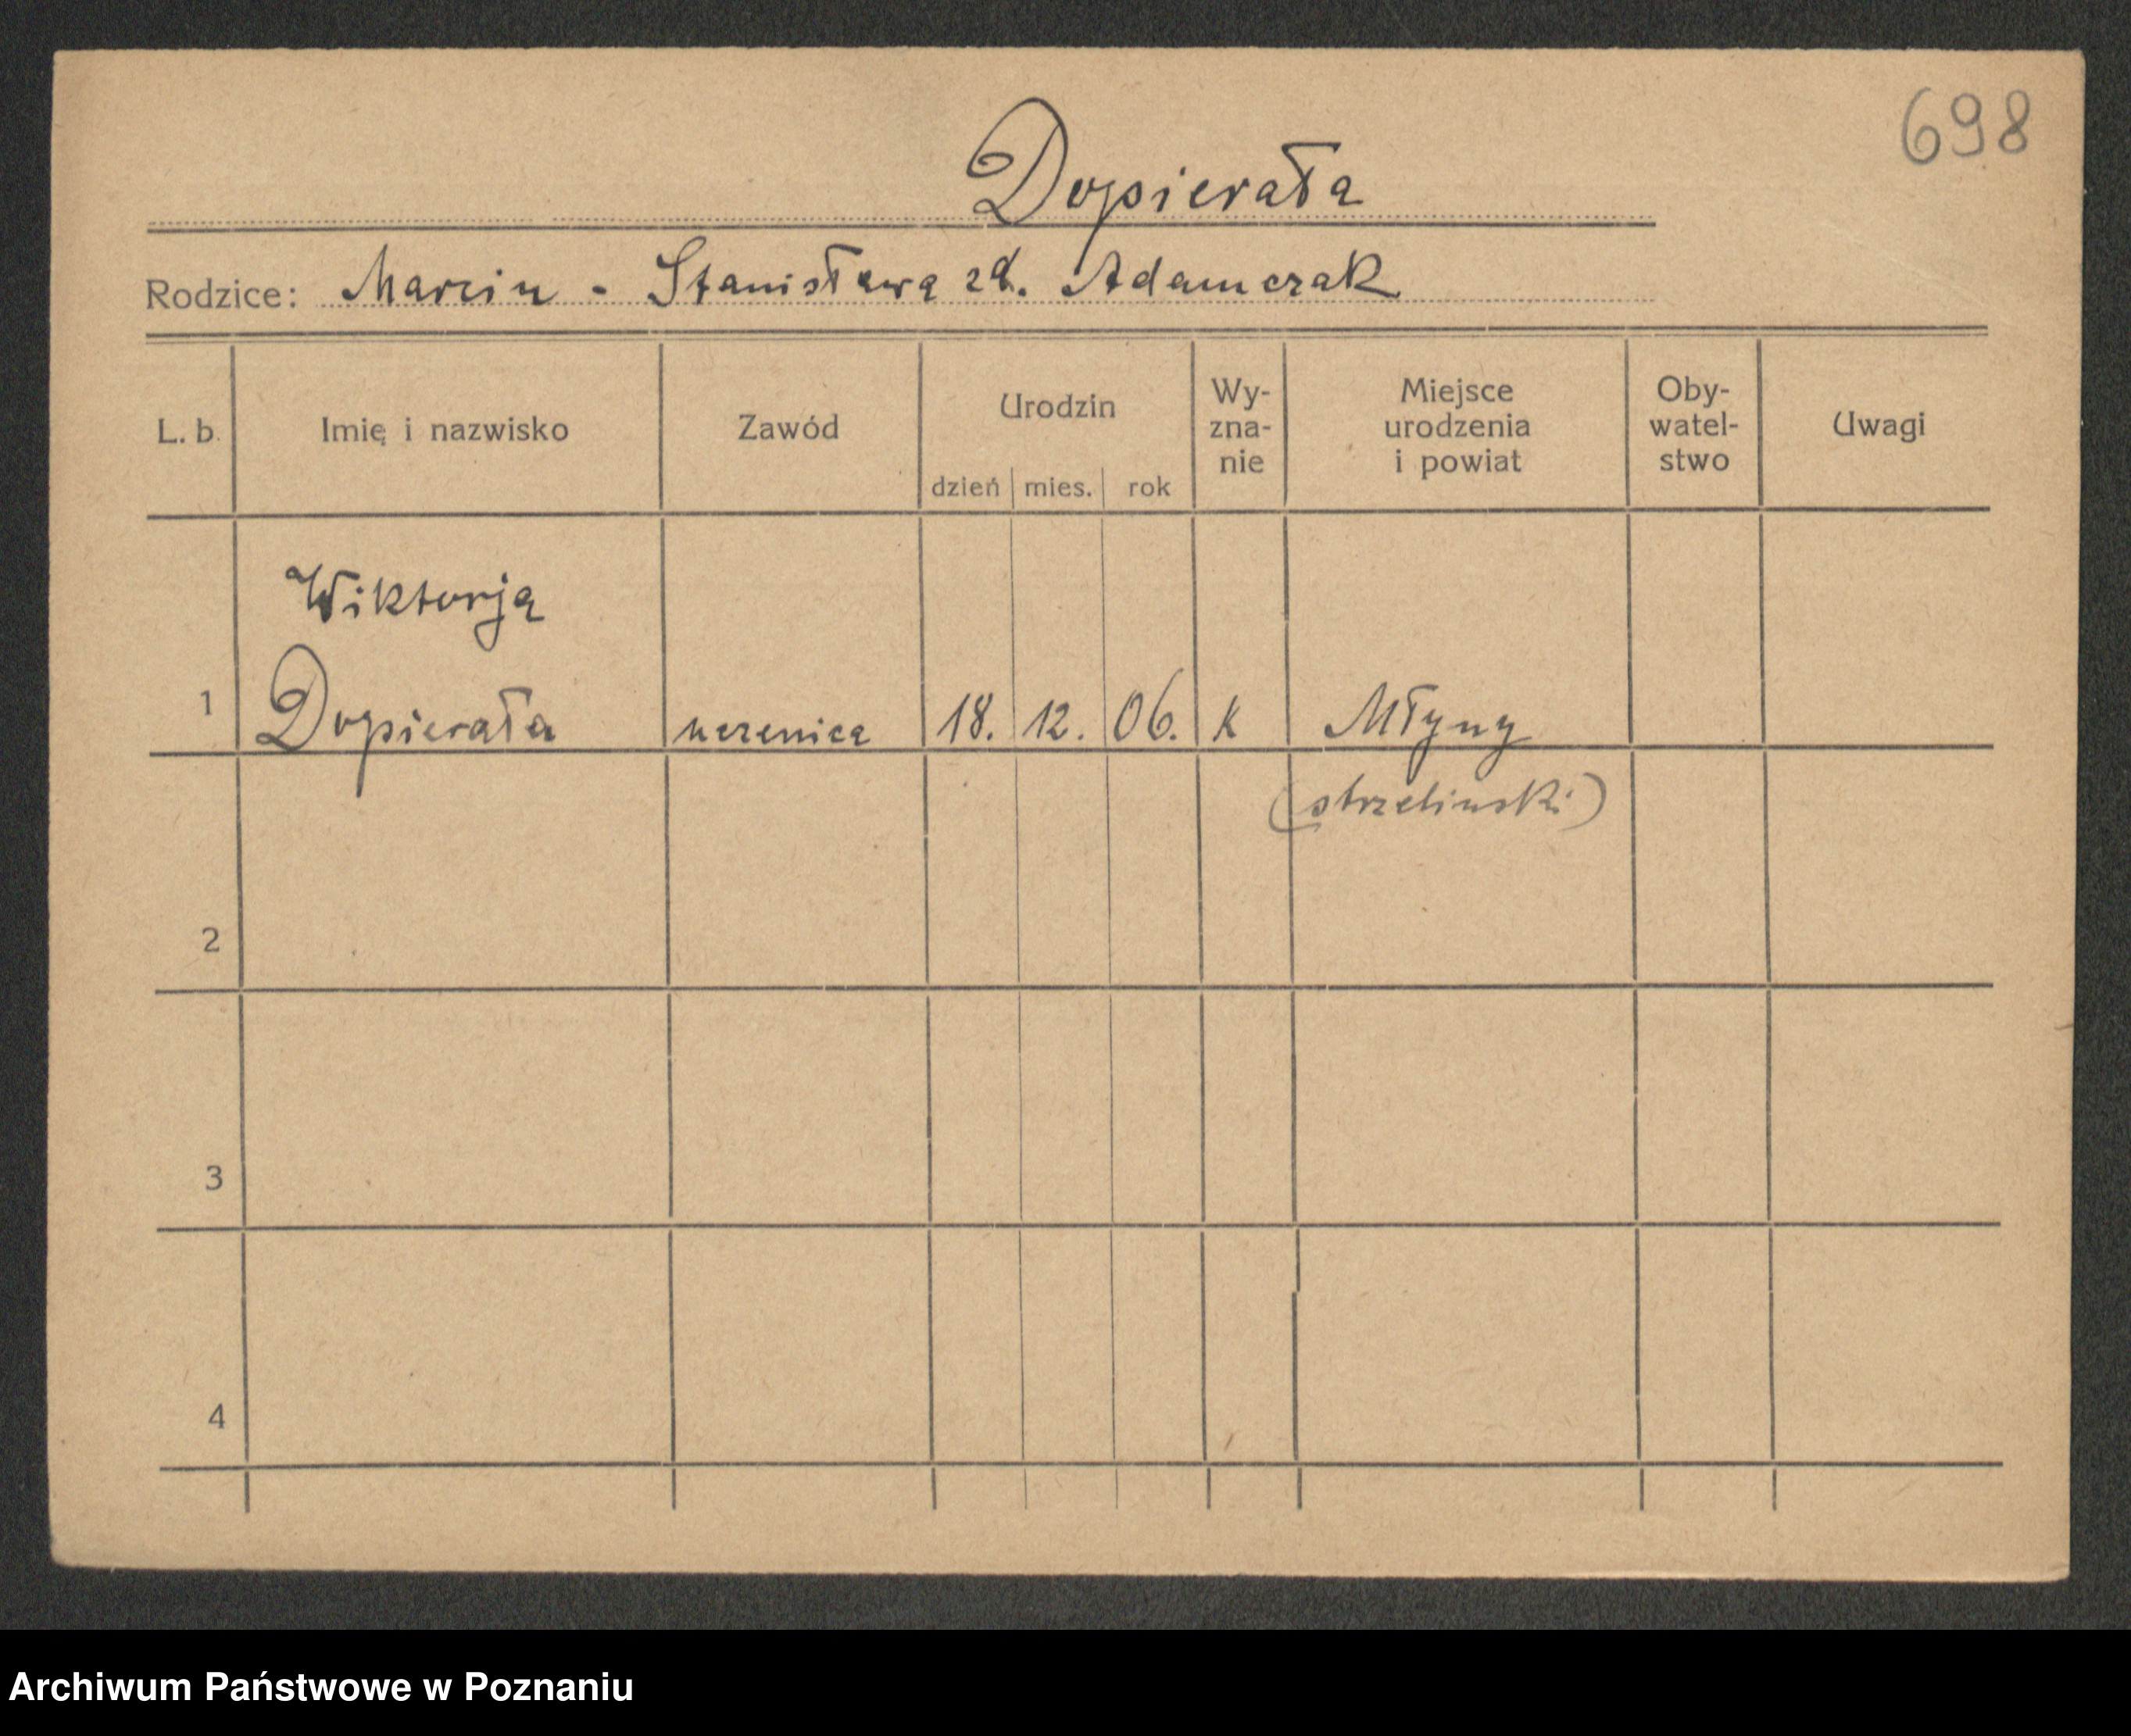 698
Dopierała
Rodzice: Marcin - Stanisława zd. Adamczak
L. b. Imię i nazwisko Zawód Urodzin dzień mies. rok Wy-zna-nie Miejsce urodzenia i powiat Oby-watel-stwo Uwagi
Wiktorja
1 Dopierała uczenica 18. 12. 06. K Młyny
(strzelinski)
2
3
4
Archiwum Państwowe w Poznaniu